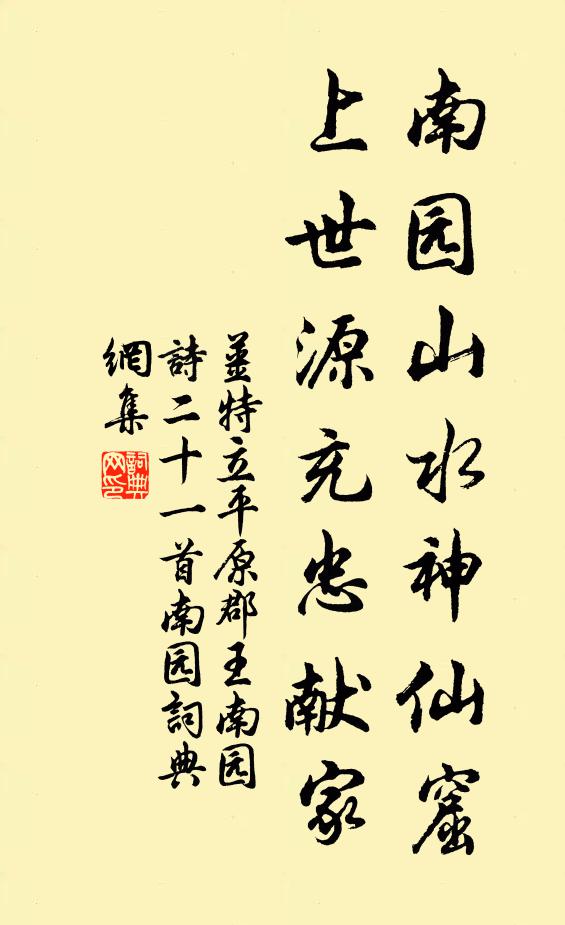 南园山水神仙窟
上世源充忠献家
姜特立平原郡王南园
詩二十一首南园詞典
網集
詞典网印